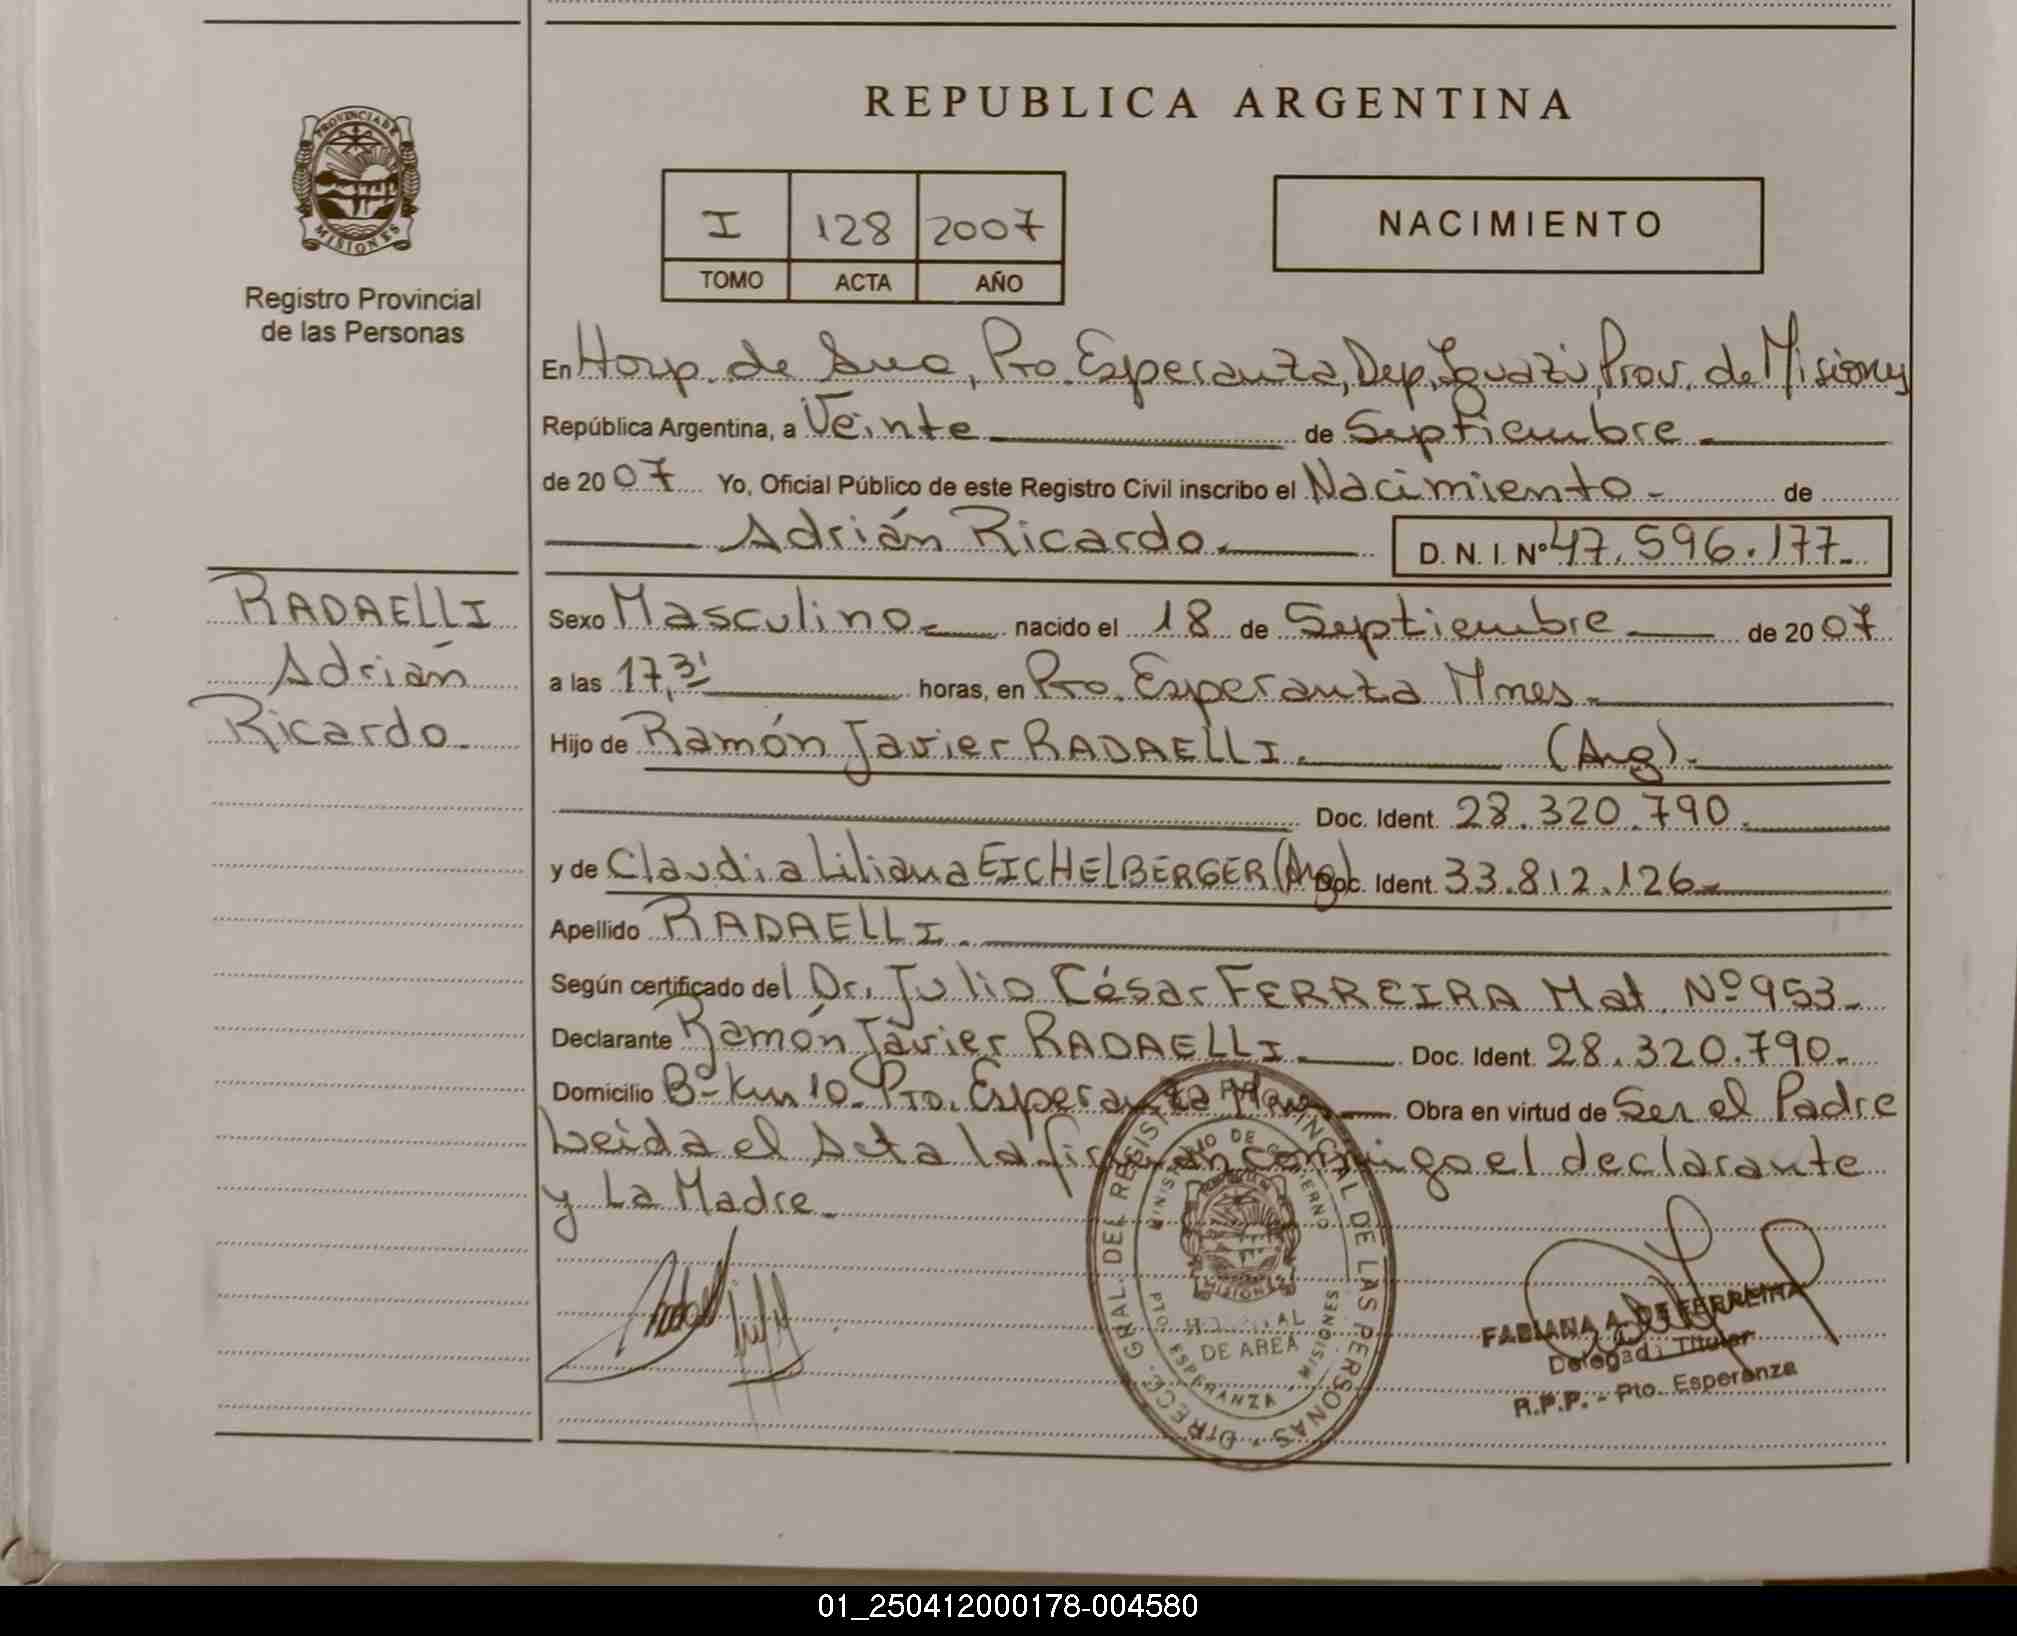 REPUBLICA ARGENTINA
PROVINCIA DE
MISIONES
Registro Provincial
de las Personas
I 128 2007
TOMO ACTA AÑO
NACIMIENTO
En Hosp. de Area, Pto. Esperanza, Dep. Iguazú, Prov. de Misiones
República Argentina, a Veinte de Septiembre
de 2007 Yo, Oficial Público de este Registro Civil inscribo el Nacimiento de
Adrián Ricardo D. N. I. Nº 47.596.177
RADAELLI
Adrián
Ricardo
Sexo Masculino nacido el 18 de Septiembre de 2007
a las 17,31 horas, en Pto. Esperanza Mnes.
Hijo de Ramón Javier RADAELLI. (Arg).
Doc. Ident. 28.320.790.
y de Claudia Liliana EICHELBERGER (Arg) Doc. Ident. 33.812.126
Apellido RADAELLI.
Según certificado del Dr. Julio César FERREIRA Mat. Nº 953
Declarante Ramón Javier RADAELLI Doc. Ident. 28.320.790.
Domicilio Bº Km 10. Pto. Esperanza Mnes Obra en virtud de Ser el Padre
Leida el Acta la firman conmigo el declarante
y La Madre
DIRECC. GRAL. DEL REGISTRO PROVINCIAL DE LAS PERSONAS
MINISTERIO DE GOBIERNO
MISIONES
HOSPITAL
DE AREA
PTO ESPERANZA, MISIONES
FABIANA A. DE FERREIRA
Delegada Titular
R.P.P. - Pto. Esperanza
01_250412000178-004580